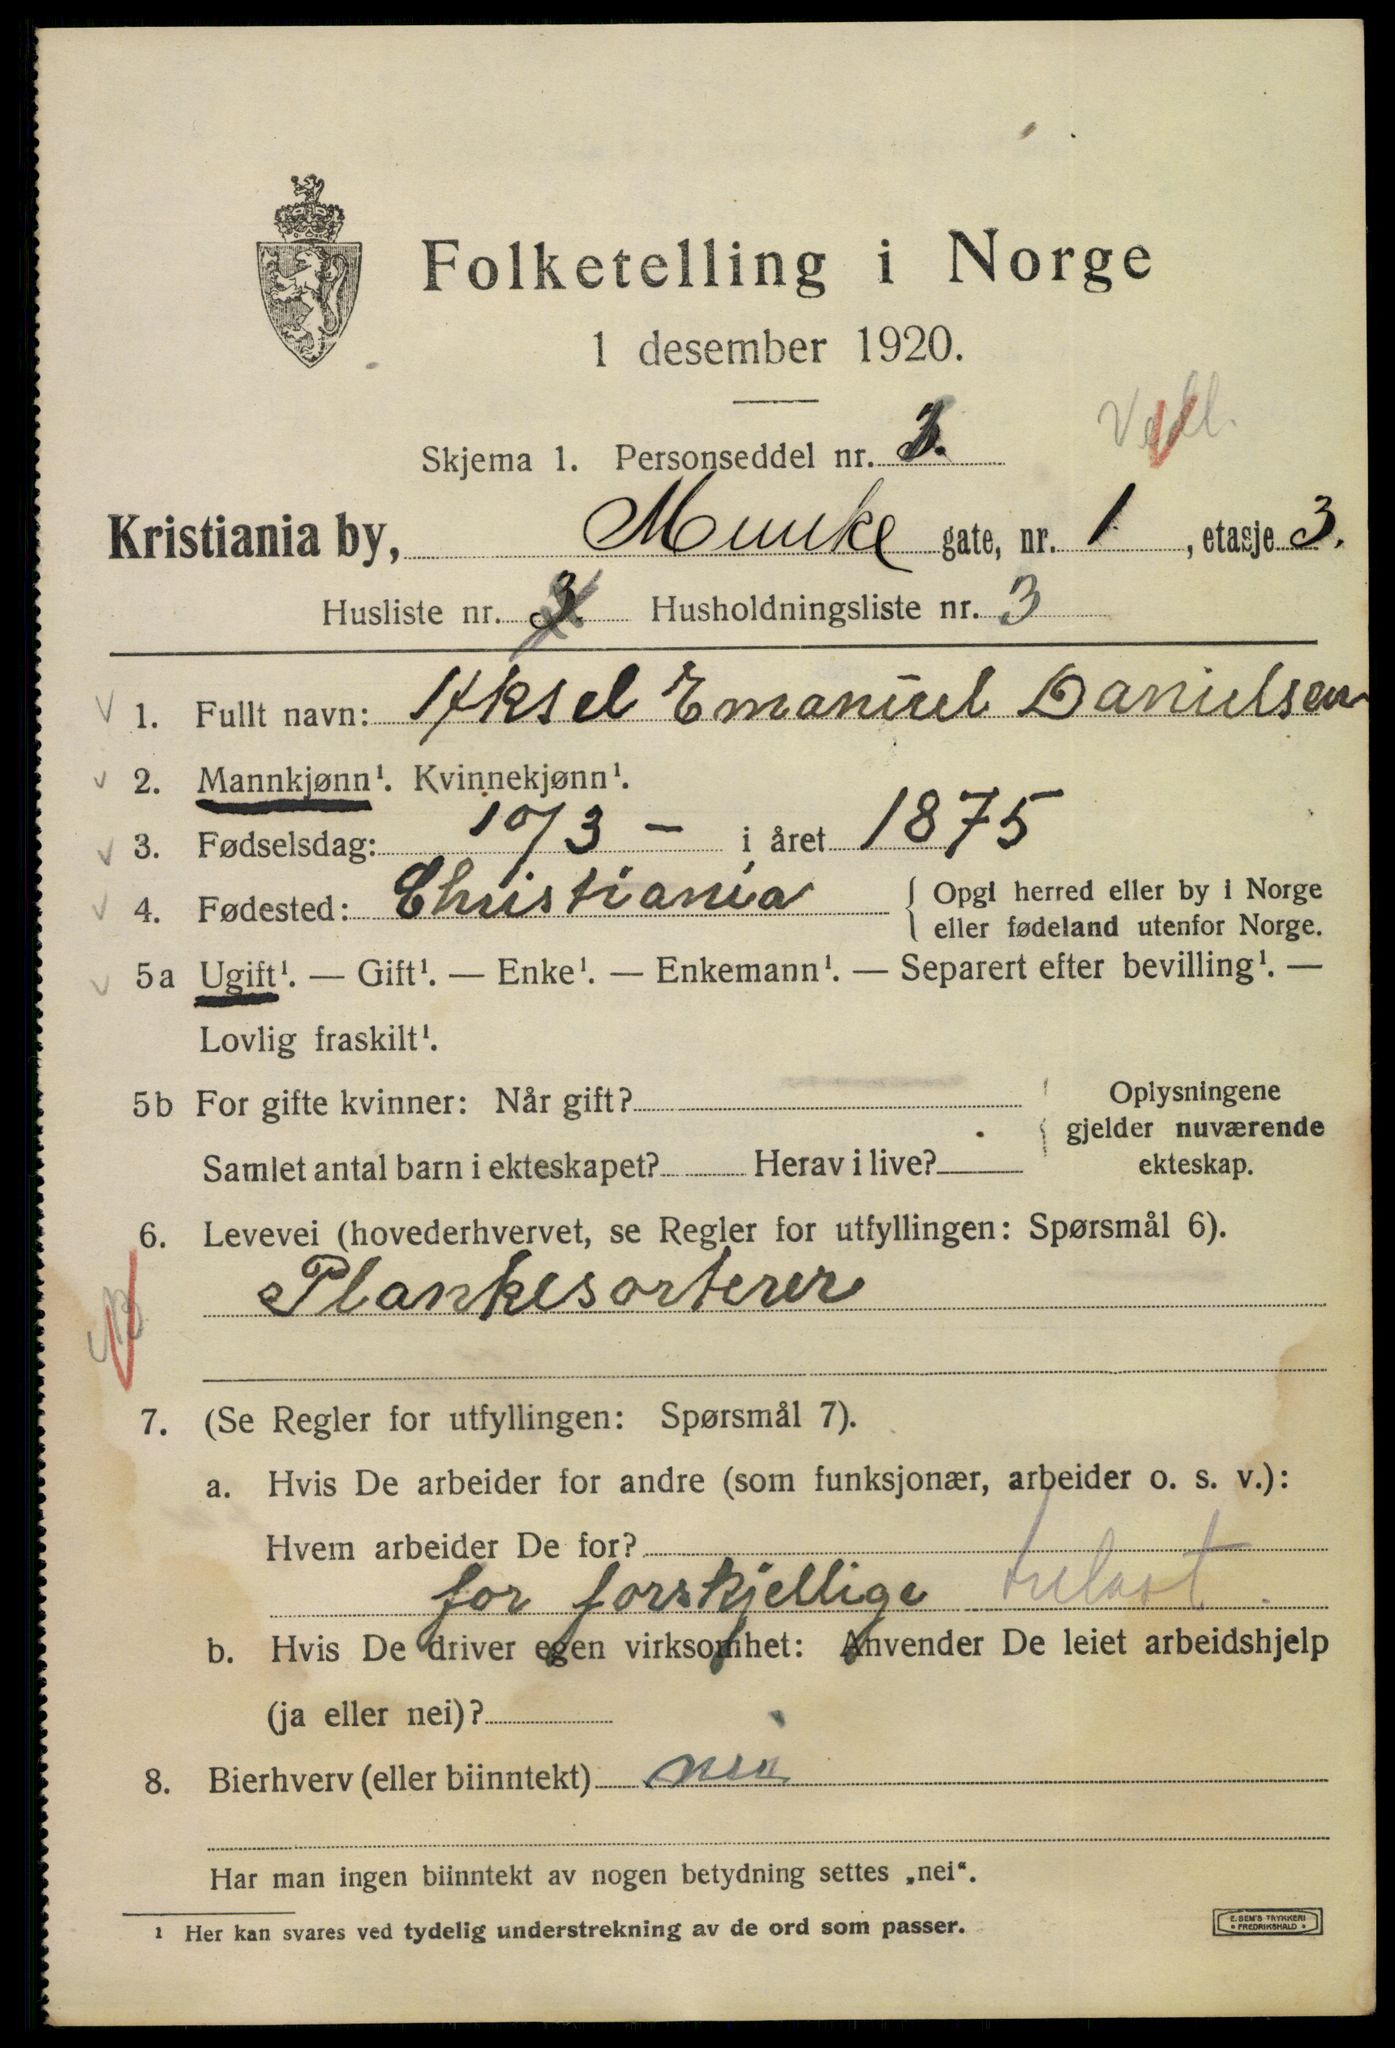 Folketelling i Norge
1 desember 1920.
Skjema 1. Personseddel nr. 3.
Kristiania by, Munke gate, nr. 1, etasje 3.
Husliste nr. 3. Husholdningsliste nr. 3
1. Fullt navn: Aksel Emanuel Danielsen
2. Mannkjønn¹. Kvinnekjønn¹.
3. Fødselsdag: 10/3 — i året 1875
4. Fødested: Christiania { Opgi herred eller by i Norge
eller fødeland utenfor Norge.
5a Ugift¹. — Gift¹. — Enke¹. — Enkemann¹. — Separert efter bevilling¹. —
Lovlig fraskilt¹.
5b For gifte kvinner: Når gift? Oplysningene
gjelder nuværende
Samlet antal barn i ekteskapet? Herav i live? ekteskap.
6. Levevei (hovederhvervet, se Regler for utfyllingen: Spørsmål 6).
Plankesorterer
7. (Se Regler for utfyllingen: Spørsmål 7).
a. Hvis De arbeider for andre (som funksjonær, arbeider o. s. v.):
Hvem arbeider De for?
for forskjellige trelast.
b. Hvis De driver egen virksomhet: Anvender De leiet arbeidshjelp
(ja eller nei)?
8. Bierhverv (eller biinntekt) nei
Har man ingen biinntekt av nogen betydning settes „nei“.
¹ Her kan svares ved tydelig understrekning av de ord som passer.
E. SEM'S TRYKKERI
• FREDRIKSHALD •